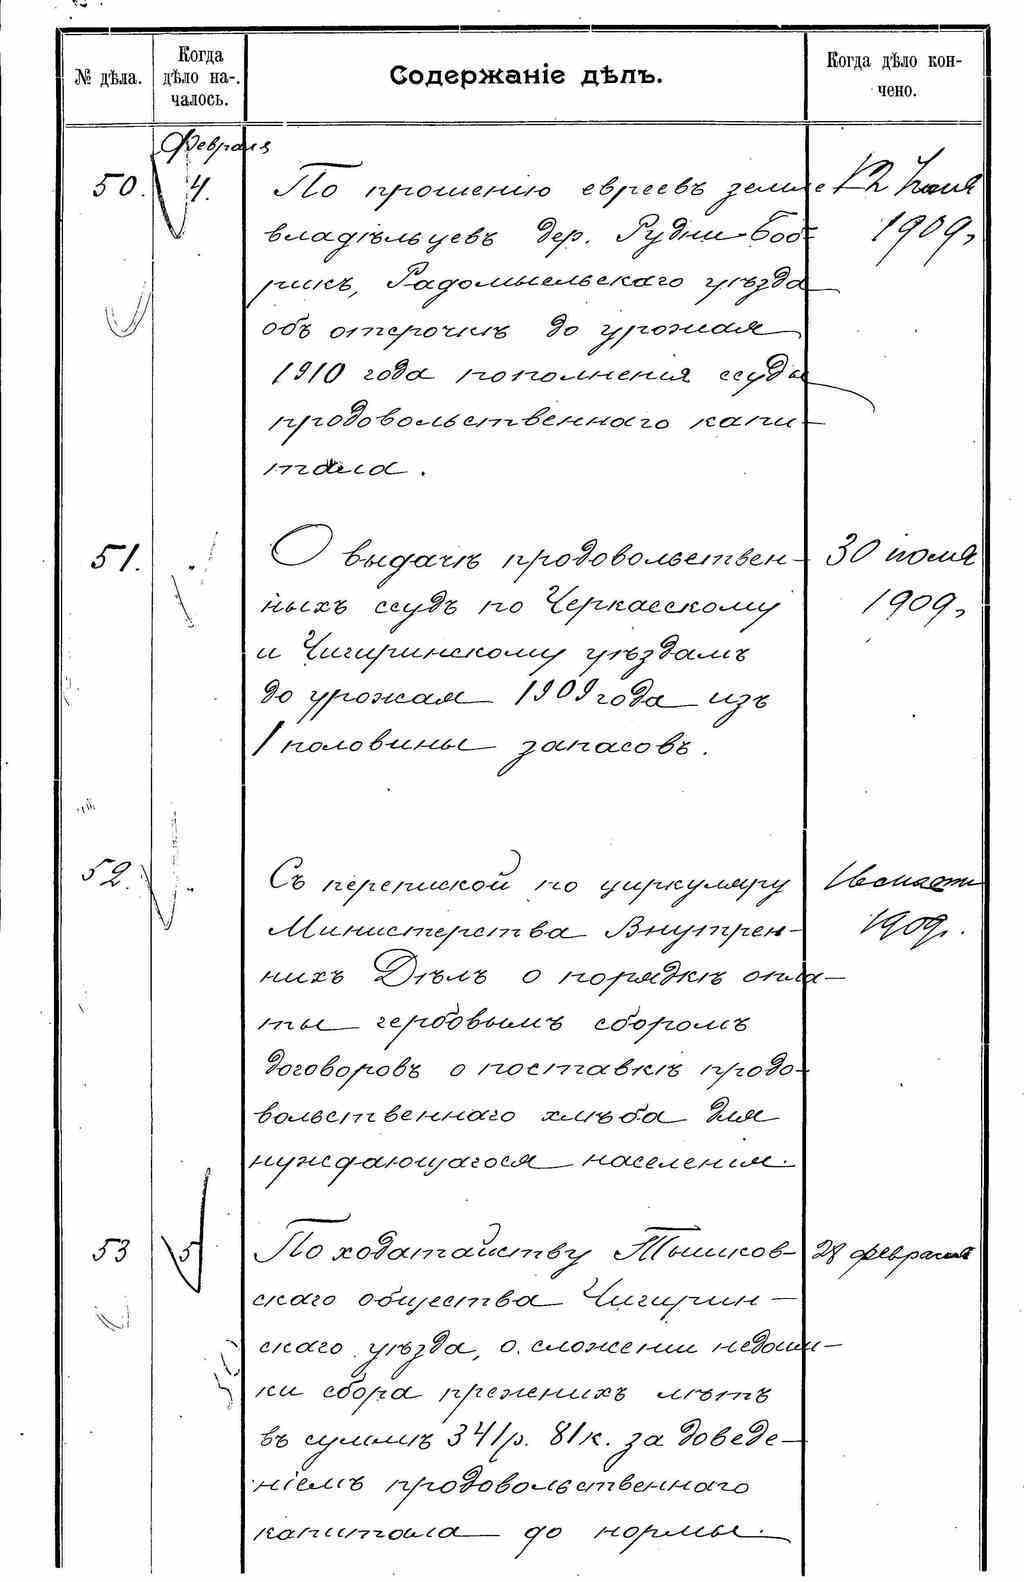 № дѣла.
Когда
дѣло на-
чалось.
Содержаніе дѣлъ.
Когда дѣло кон-
чено.
Февраля
50.
4.
По прошенію евреевъ земле
владѣльцевъ дер. Рудни-Боб-
рикъ, Радомысльскаго уѣзда
объ отсрочкѣ до урожая
1910 года пополненія ссуды
продовольственнаго капи-
тала.
12 Іюня
1909 г.
51.
О выдачѣ продовольствен-
ныхъ ссудъ по Черкасскому
и Чигиринскому уѣздамъ
до урожая 1909 года изъ
1/ половины запасовъ.
30 іюля
1909 г.
52.
Съ перепиской по циркуляру
Министерства Внутрен-
нихъ Дѣлъ о порядкѣ опла-
ты гербовымъ сборомъ
договоровъ о поставкѣ продо-
вольственнаго хлѣба для
нуждающагося населенія.
1909 г.
53
5
По ходатайству Тышков-
скаго общества Чигирин-
скаго уѣзда, о сложеніи недоим-
ки сбора прежнихъ лѣтъ
въ суммѣ 341 р. 81 к. за доведе-
ніемъ продовольственнаго
капитала до нормы.
28 февраля